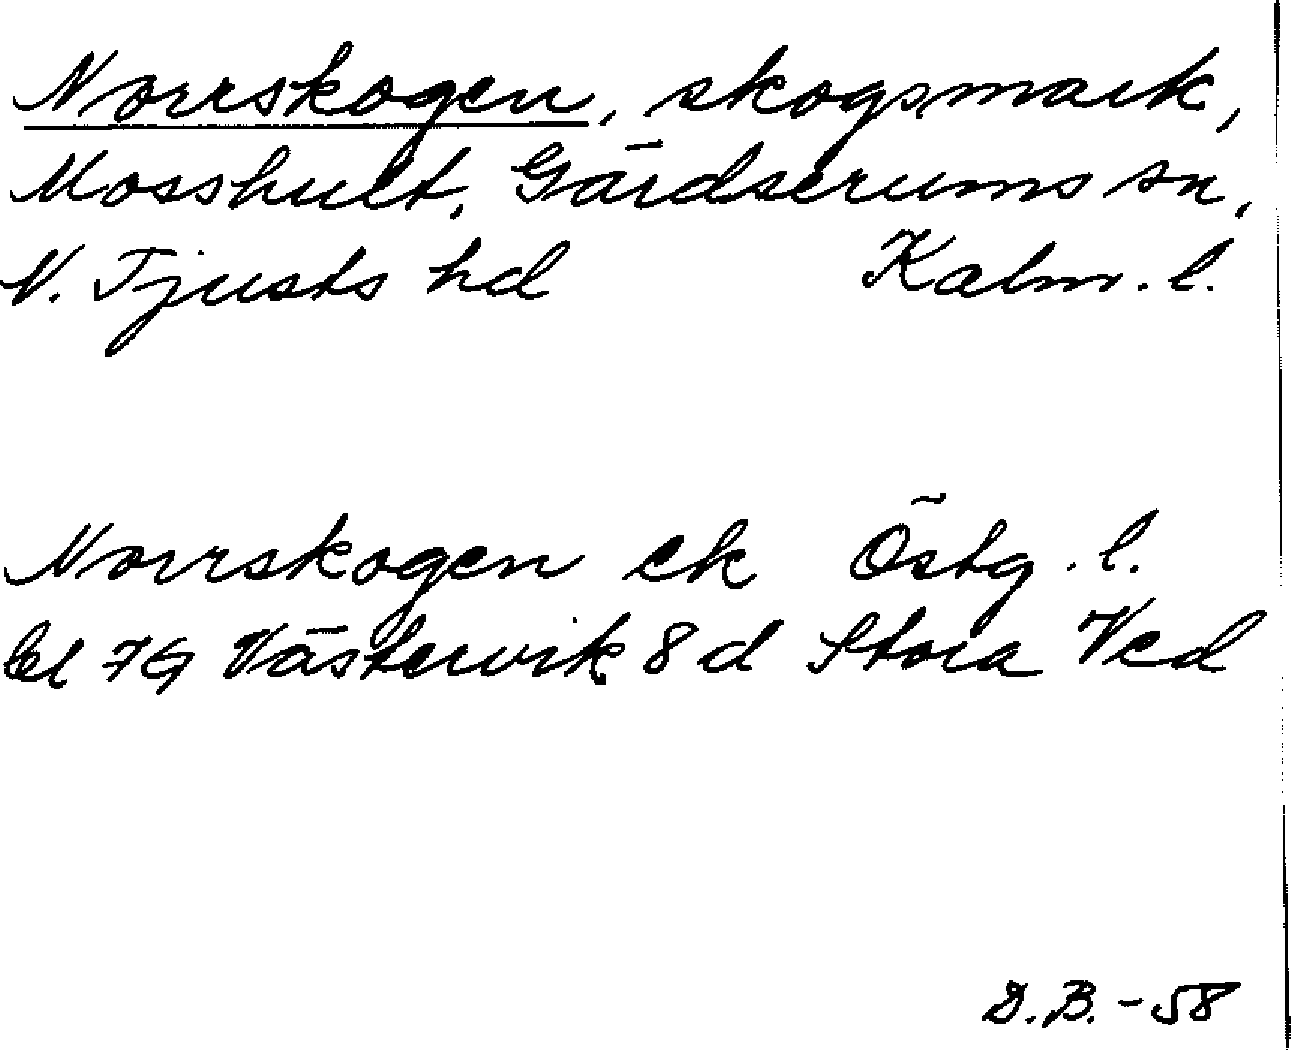 Norrskogen, skogsmark,
Mosshult, Gärdserums sn,
N. Tjusts hd Kalm. l.
Norrskogen ek Östg. l.
bl 7G Västervik 8 d Stora Ved
D.B. - 58